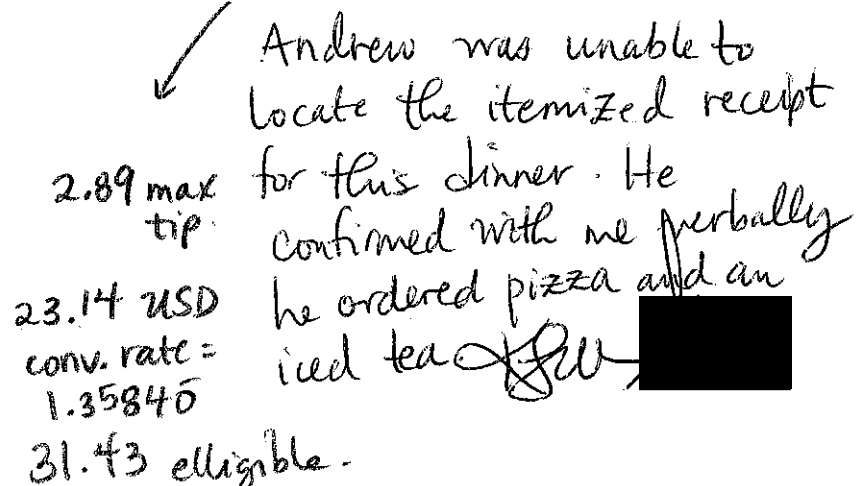 Andrew was unable to
locate the itemized receipt
for this dinner. He
confirmed with me verbally
he ordered pizza and an
iced tea
2.89 max
tip.
23.14 USD
conv. rate =
1.35840
31.43 elligible.